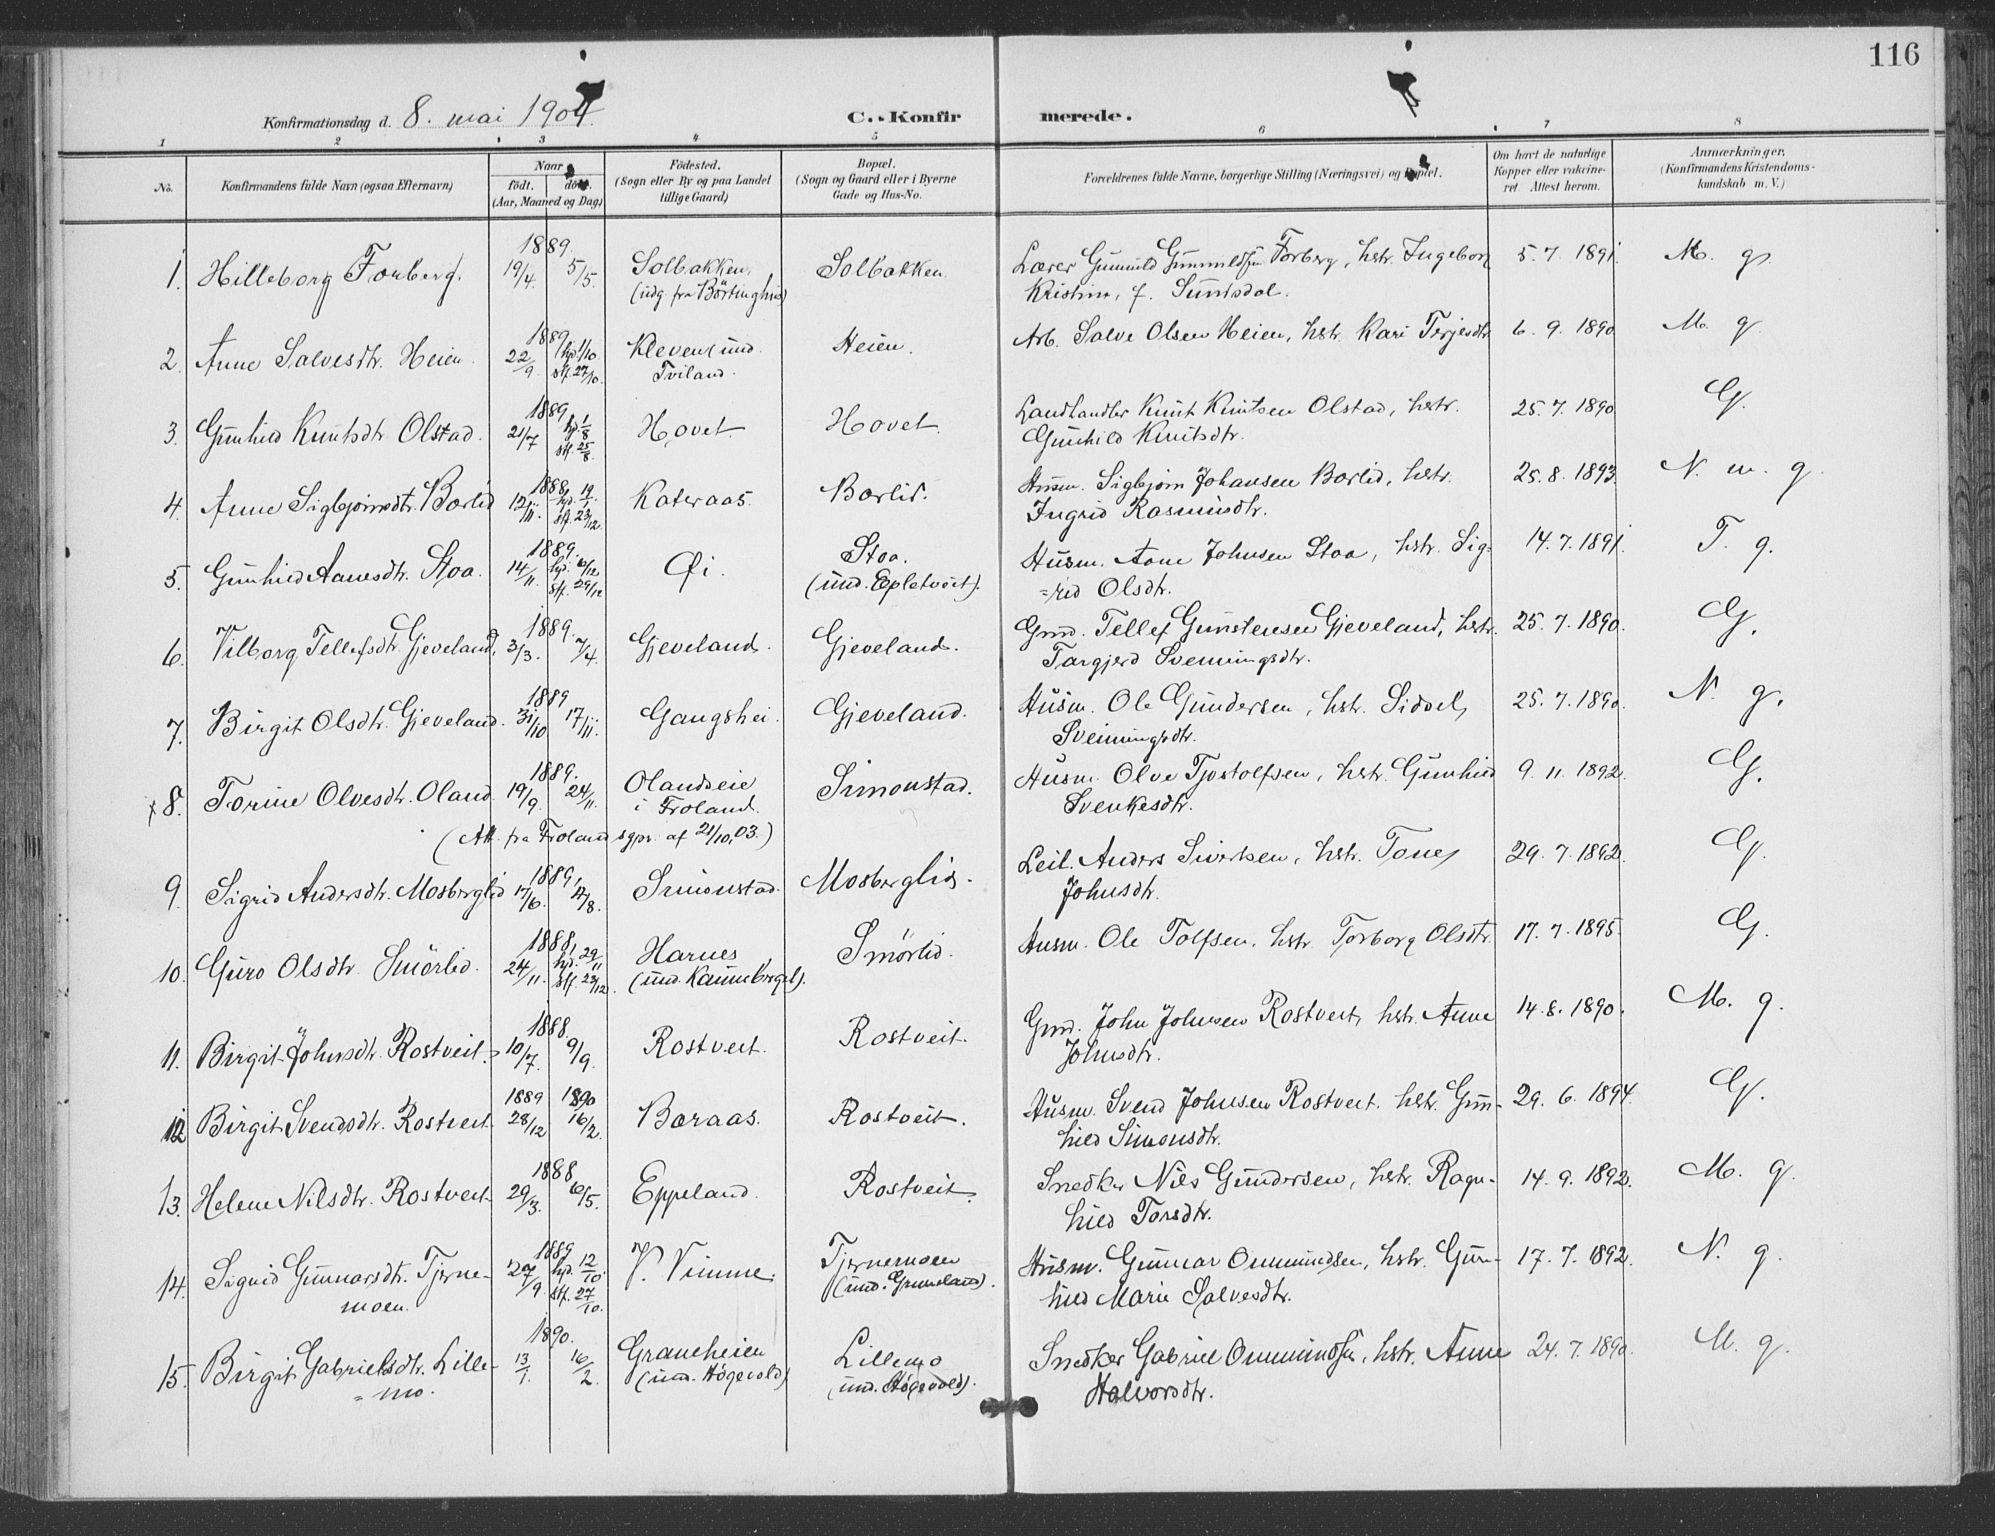 116
Konfirmationsdag d. 8. mai 1904.
C. Konfirmerede.
1 2 3 4 5 6 7 8
No.
Konfirmandens fulde Navn (ogsaa Efternavn)
Naar
født. døbt.
(Aar, Maaned og Dag)
Fødested.
(Sogn eller By og paa Landet
tillige Gaard)
Bopæl.
(Sogn og Gaard eller i Byerne
Gade og Hus-No.
Forældrenes fulde Navne, borgerlige Stilling (Næringsvei) og Bopæl.
Om havt de naturlige
Kopper eller vakcine-
ret. Attest herom.
Anmærkninger,
(Konfirmandens Kristendoms-
kundskab m. V.)
1. Hilleborg Forberg. 1889. 19/4. 5/5. Solbakken, Solbakken. Lærer Gunnuld Gunnuldsen Forberg, hstr. Ingeborg 5. 7. 1891. M. g.
(udg. fra Börtinghus) Kristine, f. Suntsdal.
2. Anne Salvesdtr. Heien. 1889 22/9. hjd. 1/10 stf. 27/10. Kleven (und. Heien. Arb. Salve Olsen Heien, hstr. Kari Terjesdtr. 6. 9. 1890 M. g.
Tviland.
3. Gunhild Knutsdtr. Olstad. 1889 21/7 hjd. 1/8 stf. 25/8. Hovet. Hovet. Landhandler Knut Knutsen Olstad, hstr. 25. 7. 1890 G.
Gunhild Knutsdtr.
4. Anne Sigbjørnsdtr. Borlid 1888. 12/11. stf. 23/12. Kateraas. Borlid. Husm. Sigbjørn Johansen Borlid, hstr. 25. 8. 1893. N. m. g.
Ingrid Rasmusdtr.
5. Gunhild Aanesdtr. Stoa. 1889. 14/11. hjd. 6/12 stf. 29/12 Øi. Stoa. Husm. Aane Johnsen Stoa, hstr. Sig- 14. 7. 1891. T. g.
(und. Epletvett). -rid Olsdtr.
6. Vilborg Tellefsdtr. Gjeveland, 1889. 3/3. 7/4. Gjeveland. Gjeveland. Gmd. Tellef Gunstensen Gjeveland, hstr. 25. 7. 1890. G.
Targjerd Sveinungsdtr.
7. Birgit Olsdtr. Gjeveland. 1889 31/10 17/11. Gangshei. Gjeveland. Husm. Ole Gundersen, hstr. Siddel, 25. 7. 1890. N. g.
Sveinungsdtr.
8. Torine Olvesdtr. Oland 1889. 19/9. 24/11. Olandseie Simonstad. Husm. Olve Tjostolfsen, hstr. Gunhild 9. 11. 1892. G.
i Froland. Svenkesdtr.
(Att. fra Frolands sgpr. af 21/10.03.)
9. Sigrid Andersdtr. Mosberglid 1889. 17/6. 4/8. Simonstad. Mosberglid. Leil. Anders Sivertsen, hstr. Tone 29. 7. 1892. G.
Johnsdtr.
10. Guro Olsdtr. Smörlid. 1888. 24/11. hjd. 29/11 stf. 23/12. Harnes Smörlid. Husm. Ole Tolfsen, hstr. Torborg Olsdtr. 17. 7. 1895. G.
11. Birgit Johnsdtr. Rostveit. 1888 10/7. 9/9. Rostveit. Rostveit. Gmd. John Johnsen Rostveit, hstr. Anne 14. 8. 1890. M. g.
Johnsdtr.
12 Birgit Svendsdtr. Rostveit 1889 28/12 1890 16/2. Baraas. Rostveit. Husm. Svend Johnsen Rostveit. hstr. Gun- 29. 6. 1894. G.
hild Simonsdtr.
13. Helene Nilsdtr. Rostveit 1888 29/3. 6/5. Eppeland. Rostveit. Snedker Nils Gundersen, hstr. Ragn- 14. 9. 1892. M. g.
hild Torsdtr.
14. Sigrid Gunnarsdtr. Tjerne- 1889 27/9 hjd. 12/10. stf. 27/10. V. Vimme. Tjernemoen Husm. Gunnar Ommundsen, hstr. Gun- 17. 7. 1892. N. g.
moen. (und. Grimeland). hild Marie Salvesdtr.
15. Birgit Gabrielsdtr. Lille- 1890. 13/1. 16/2. Graneheien Lillemo Snedker Gabriel Ommundsen, hstr. Anne 24. 7. 1890. M. g.
-mo. (und. Högevold) (und. Högevold). Halvorsdtr.